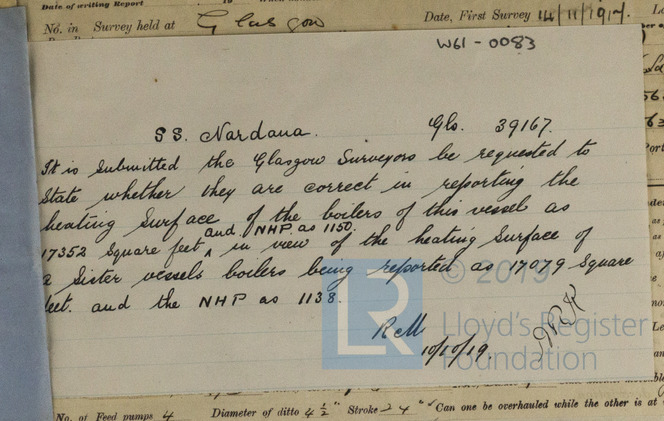 Date of writing Report
No. in Survey held at Glasgow Date, First Survey 14/11/1917.
W61-0083
SS. Nardana. Gls. 39167.
It is submitted the Glasgow Surveyors be requested to
State whether they are correct in reporting the
heating Surface of the boilers of this vessel as
and NHP as 1150.
17352 Square feet ^ in view of the heating Surface of
a Sister vessels boilers being reported as 17079 Square
feet. and the NHP as 1138.
© 2019
LR
Lloyd's Register
Foundation
RcM
10/10/19.
No. of Feed pumps 4 Diameter of ditto 4 1/2" Stroke 24" Can one be overhauled while the other is at